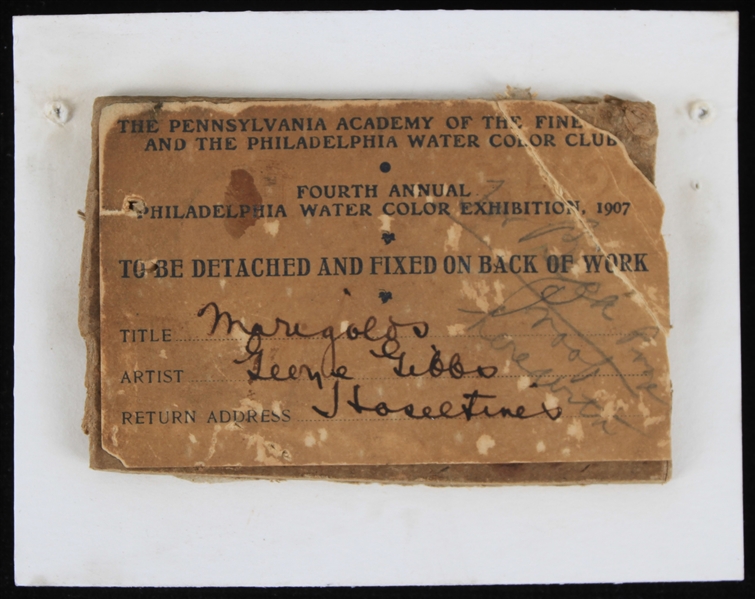 THE PENNSYLVANIA ACADEMY OF THE FINE
AND THE PHILADELPHIA WATER COLOR CLUB
FOURTH ANNUAL
PHILADELPHIA WATER COLOR EXHIBITION, 1907
TO BE DETACHED AND FIXED ON BACK OF WORK
TITLE Marigolds
ARTIST George Gibbs
RETURN ADDRESS Hoseltines